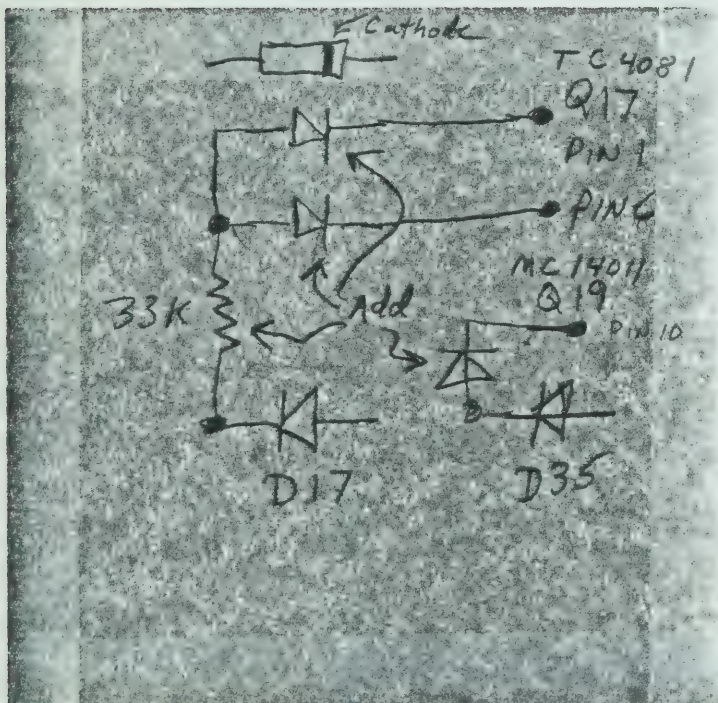 Cathode
TC4081
Q17
PIN 1
PIN 6
MC14011
Q19
PIN 10
33K
Add
D17
D35